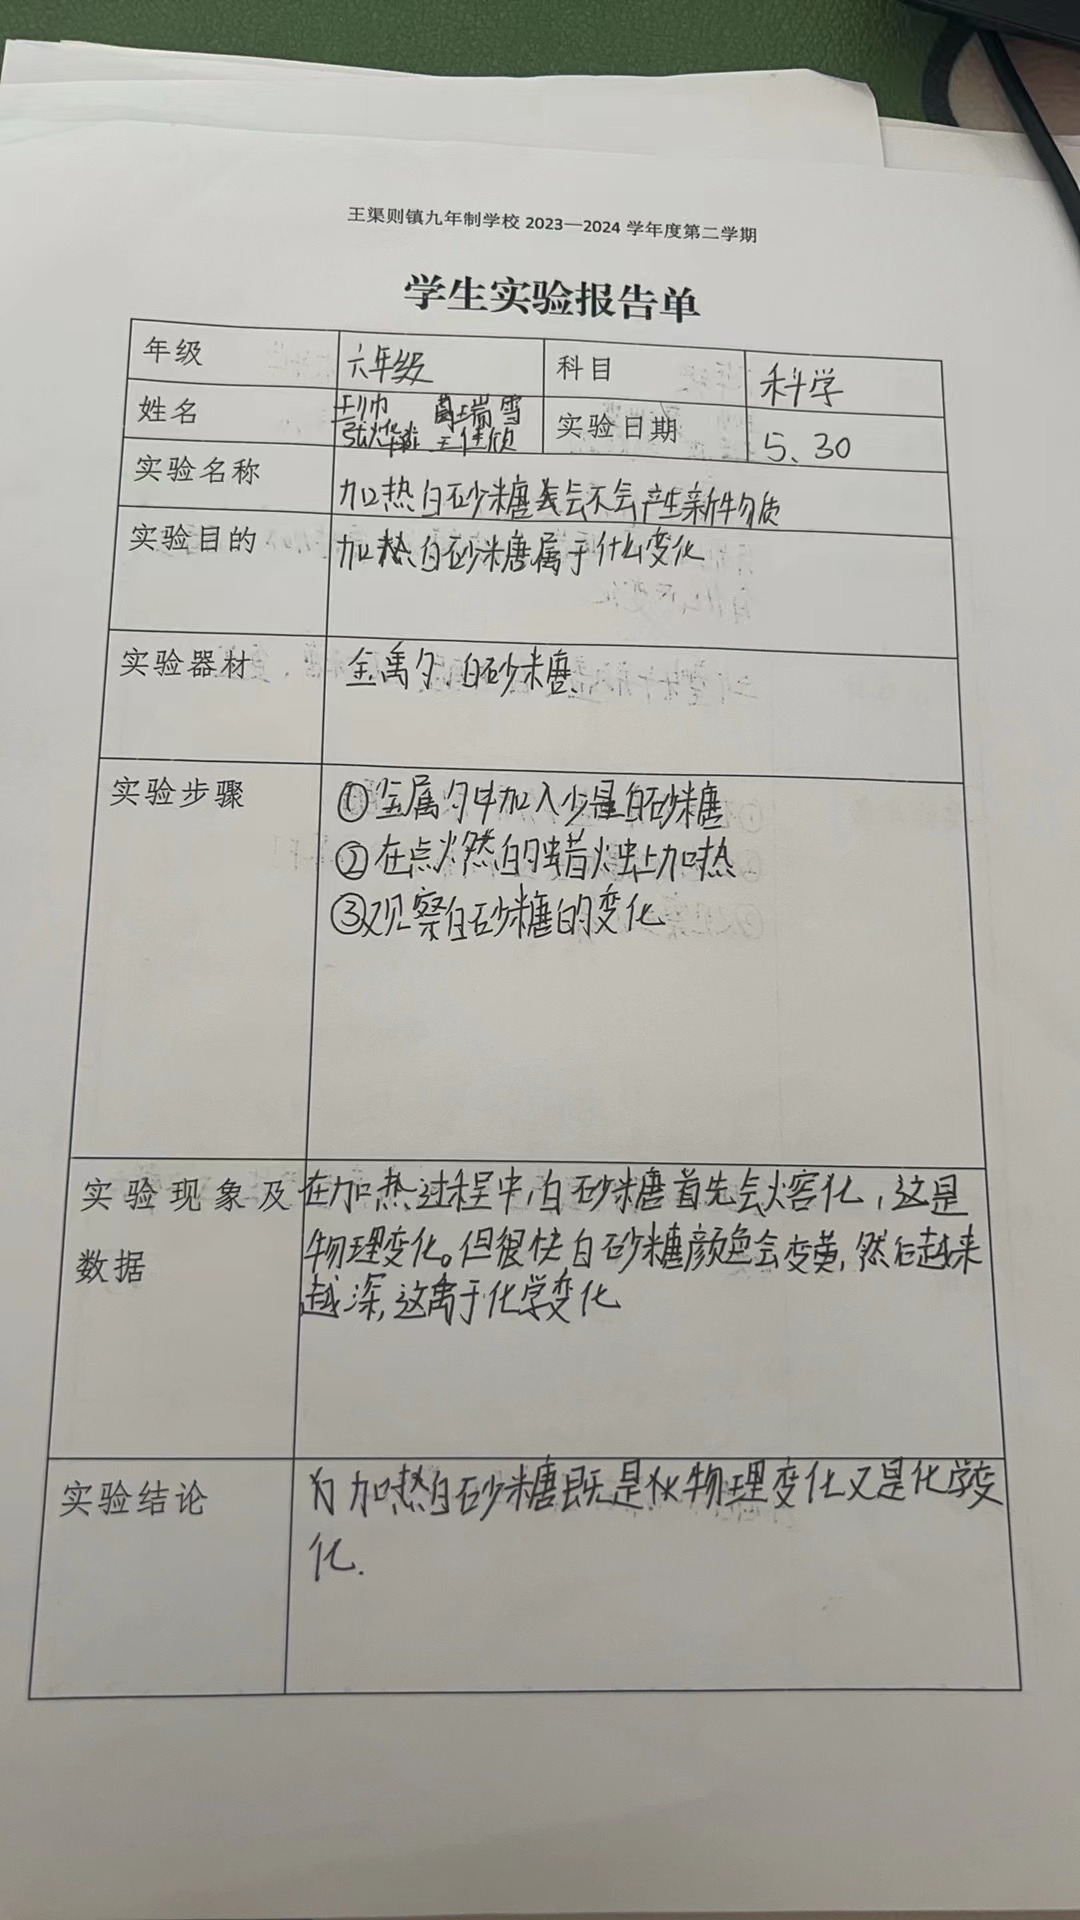 王渠则镇九年制学校 2023—2024 学年度第二学期
学生实验报告单
年级 六年级 科目 科学
姓名 王帅 葛瑞雪 实验日期 5、30
王佳欣
实验名称 加热白砂糖会不会产生新物质
实验目的 加热白砂糖属于什么变化
实验器材 金属勺、白砂糖
实验步骤 ①金属勺中加入少量白砂糖
②在点燃的蜡烛上加热
③观察白砂糖的变化
实验现象及 在加热过程中,白砂糖首先会熔化,这是
物理变化。但很快白砂糖颜色会变黄,然后越来
数据 越深,这属于化学变化
实验结论 加热白砂糖既是物理变化又是化学变
化.